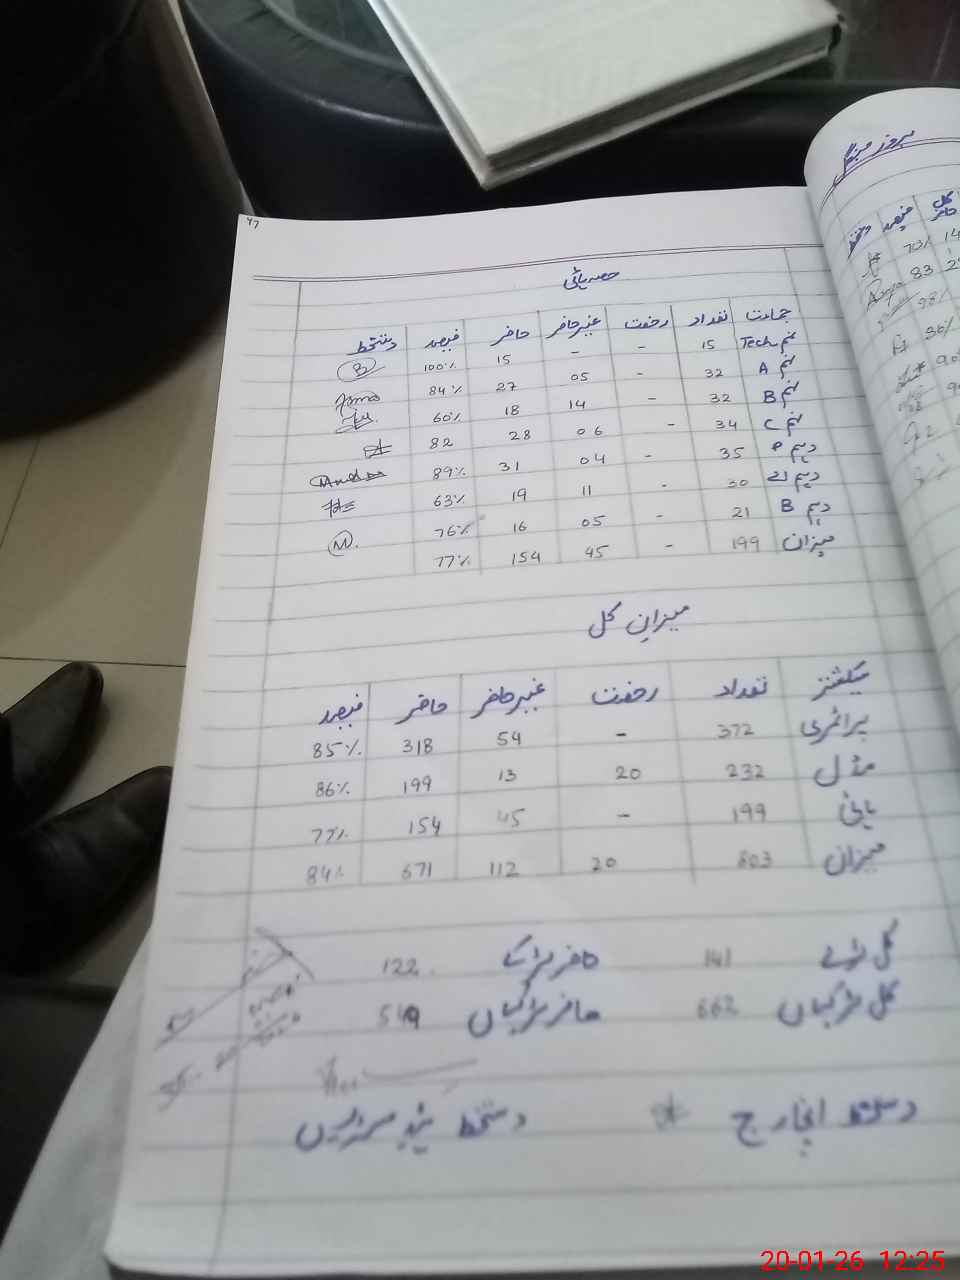 47
حصہ ہائی
جماعت تعداد رخصت غیرحاضر حاضر فیصد دستخط
نہم Tech 15 - - 15 100%
نہم A 32 - 05 27 84%
نہم B 32 - 14 18 60%
نہم C 34 - 06 28 82
دہم 35 - 04 31 89%
دہم 30 - 11 19 63%
دہم B 21 - 05 16 76%
میزان 199 - 45 154 77%
میزان کل
سیکشنز تعداد رخصت غیرحاضر حاضر فیصد
پرائمری 372 - 54 318 85%
مڈل 232 20 13 199 86%
ہائی 199 - 45 154 77%
میزان 803 20 112 671 84%
کل لڑکے 141 حاضر لڑکے 122
کل لڑکیاں 662 حاضر لڑکیاں 549
دستخط انچارج دستخط ہیڈ مسٹریس
بروز منگل
کل حاضر فیصد دستخط
70%
83
98%
20-01-26 12:25